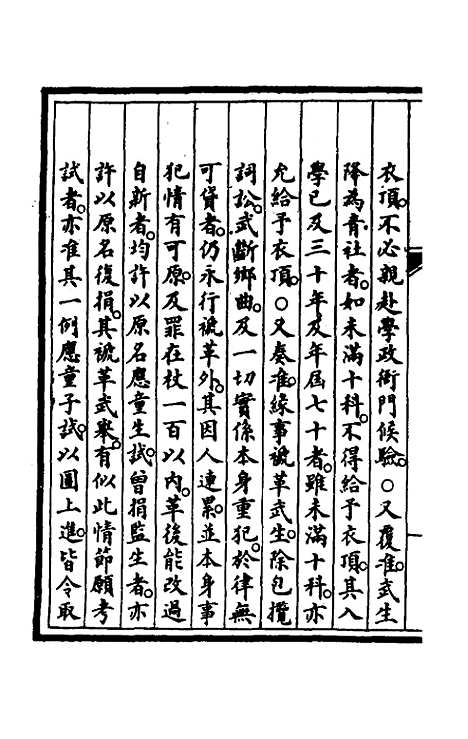 衣頂。不必親赴學政衙門候驗。○又覆准。武生
降為青社者。如未滿十科。不得給予衣頂。其入
學已及三十年及年屆七十者。雖未滿十科。亦
允給予衣頂。○又奏准。緣事褫革武生。除包攬
詞訟。武斷鄉曲。及一切實係本身重犯。於律無
可貸者。仍永行褫革外。其因人連累。並本身事
犯情有可原。及罪在杖一百以內。革後能改過
自新者。均許以原名應童生試。曾捐監生者。亦
許以原名復捐。其褫革武舉。有似此情節願考
試者。亦准其一例應童子試。以圖上進。皆令取